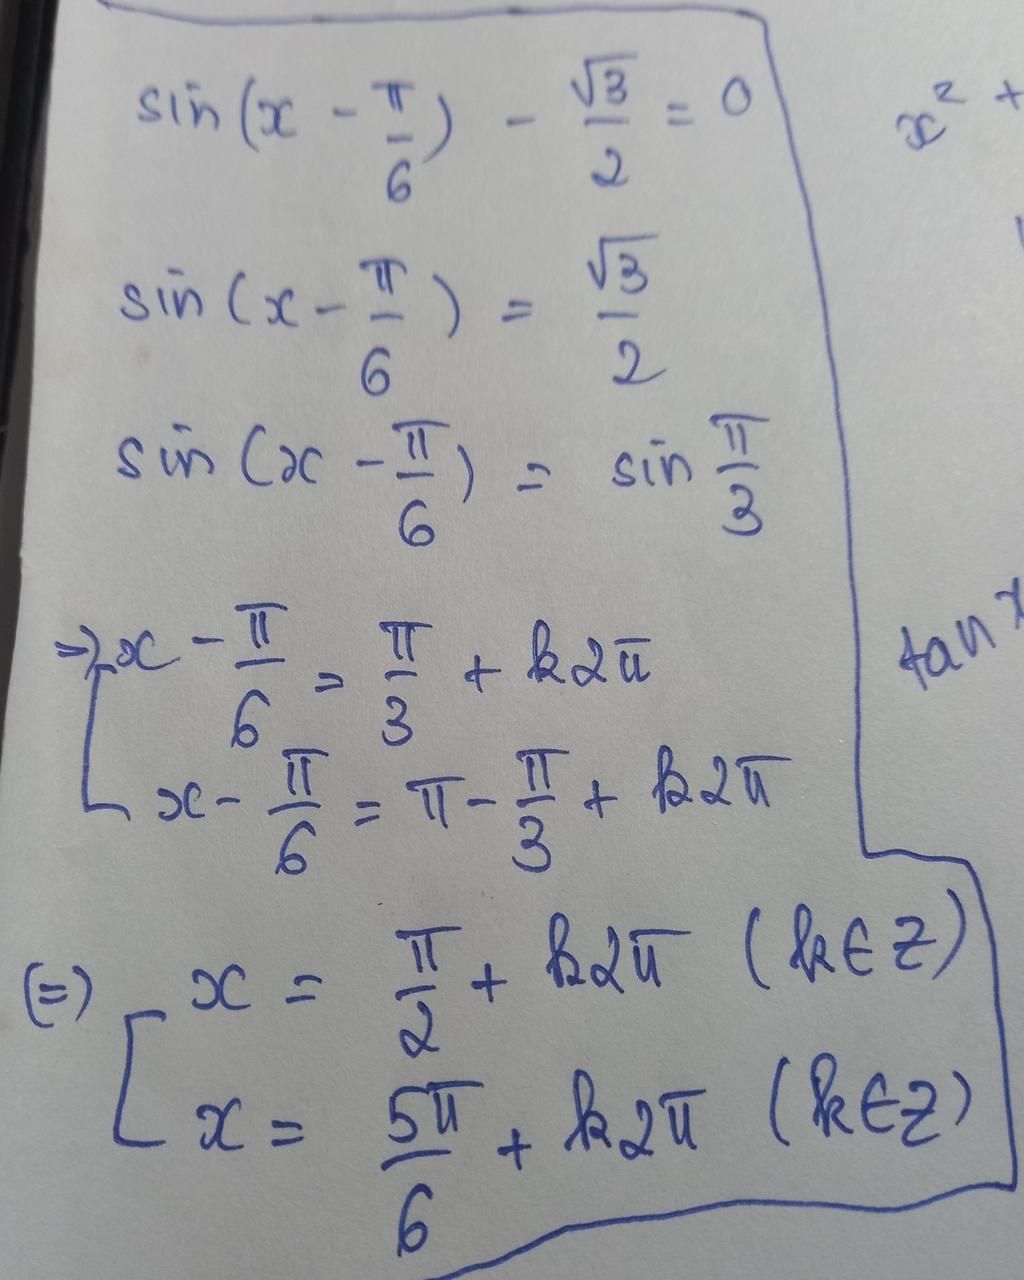 sin(x - π/6) - √3/2 = 0
x² +
sin(x - π/6) = √3/2
sin(x - π/6) = sin π/3
=> [ x - π/6 = π/3 + k2π
tan x
x - π/6 = π - π/3 + k2π
(=) [ x = π/2 + k2π (k∈Z)
x = 5π/6 + k2π (k∈Z)